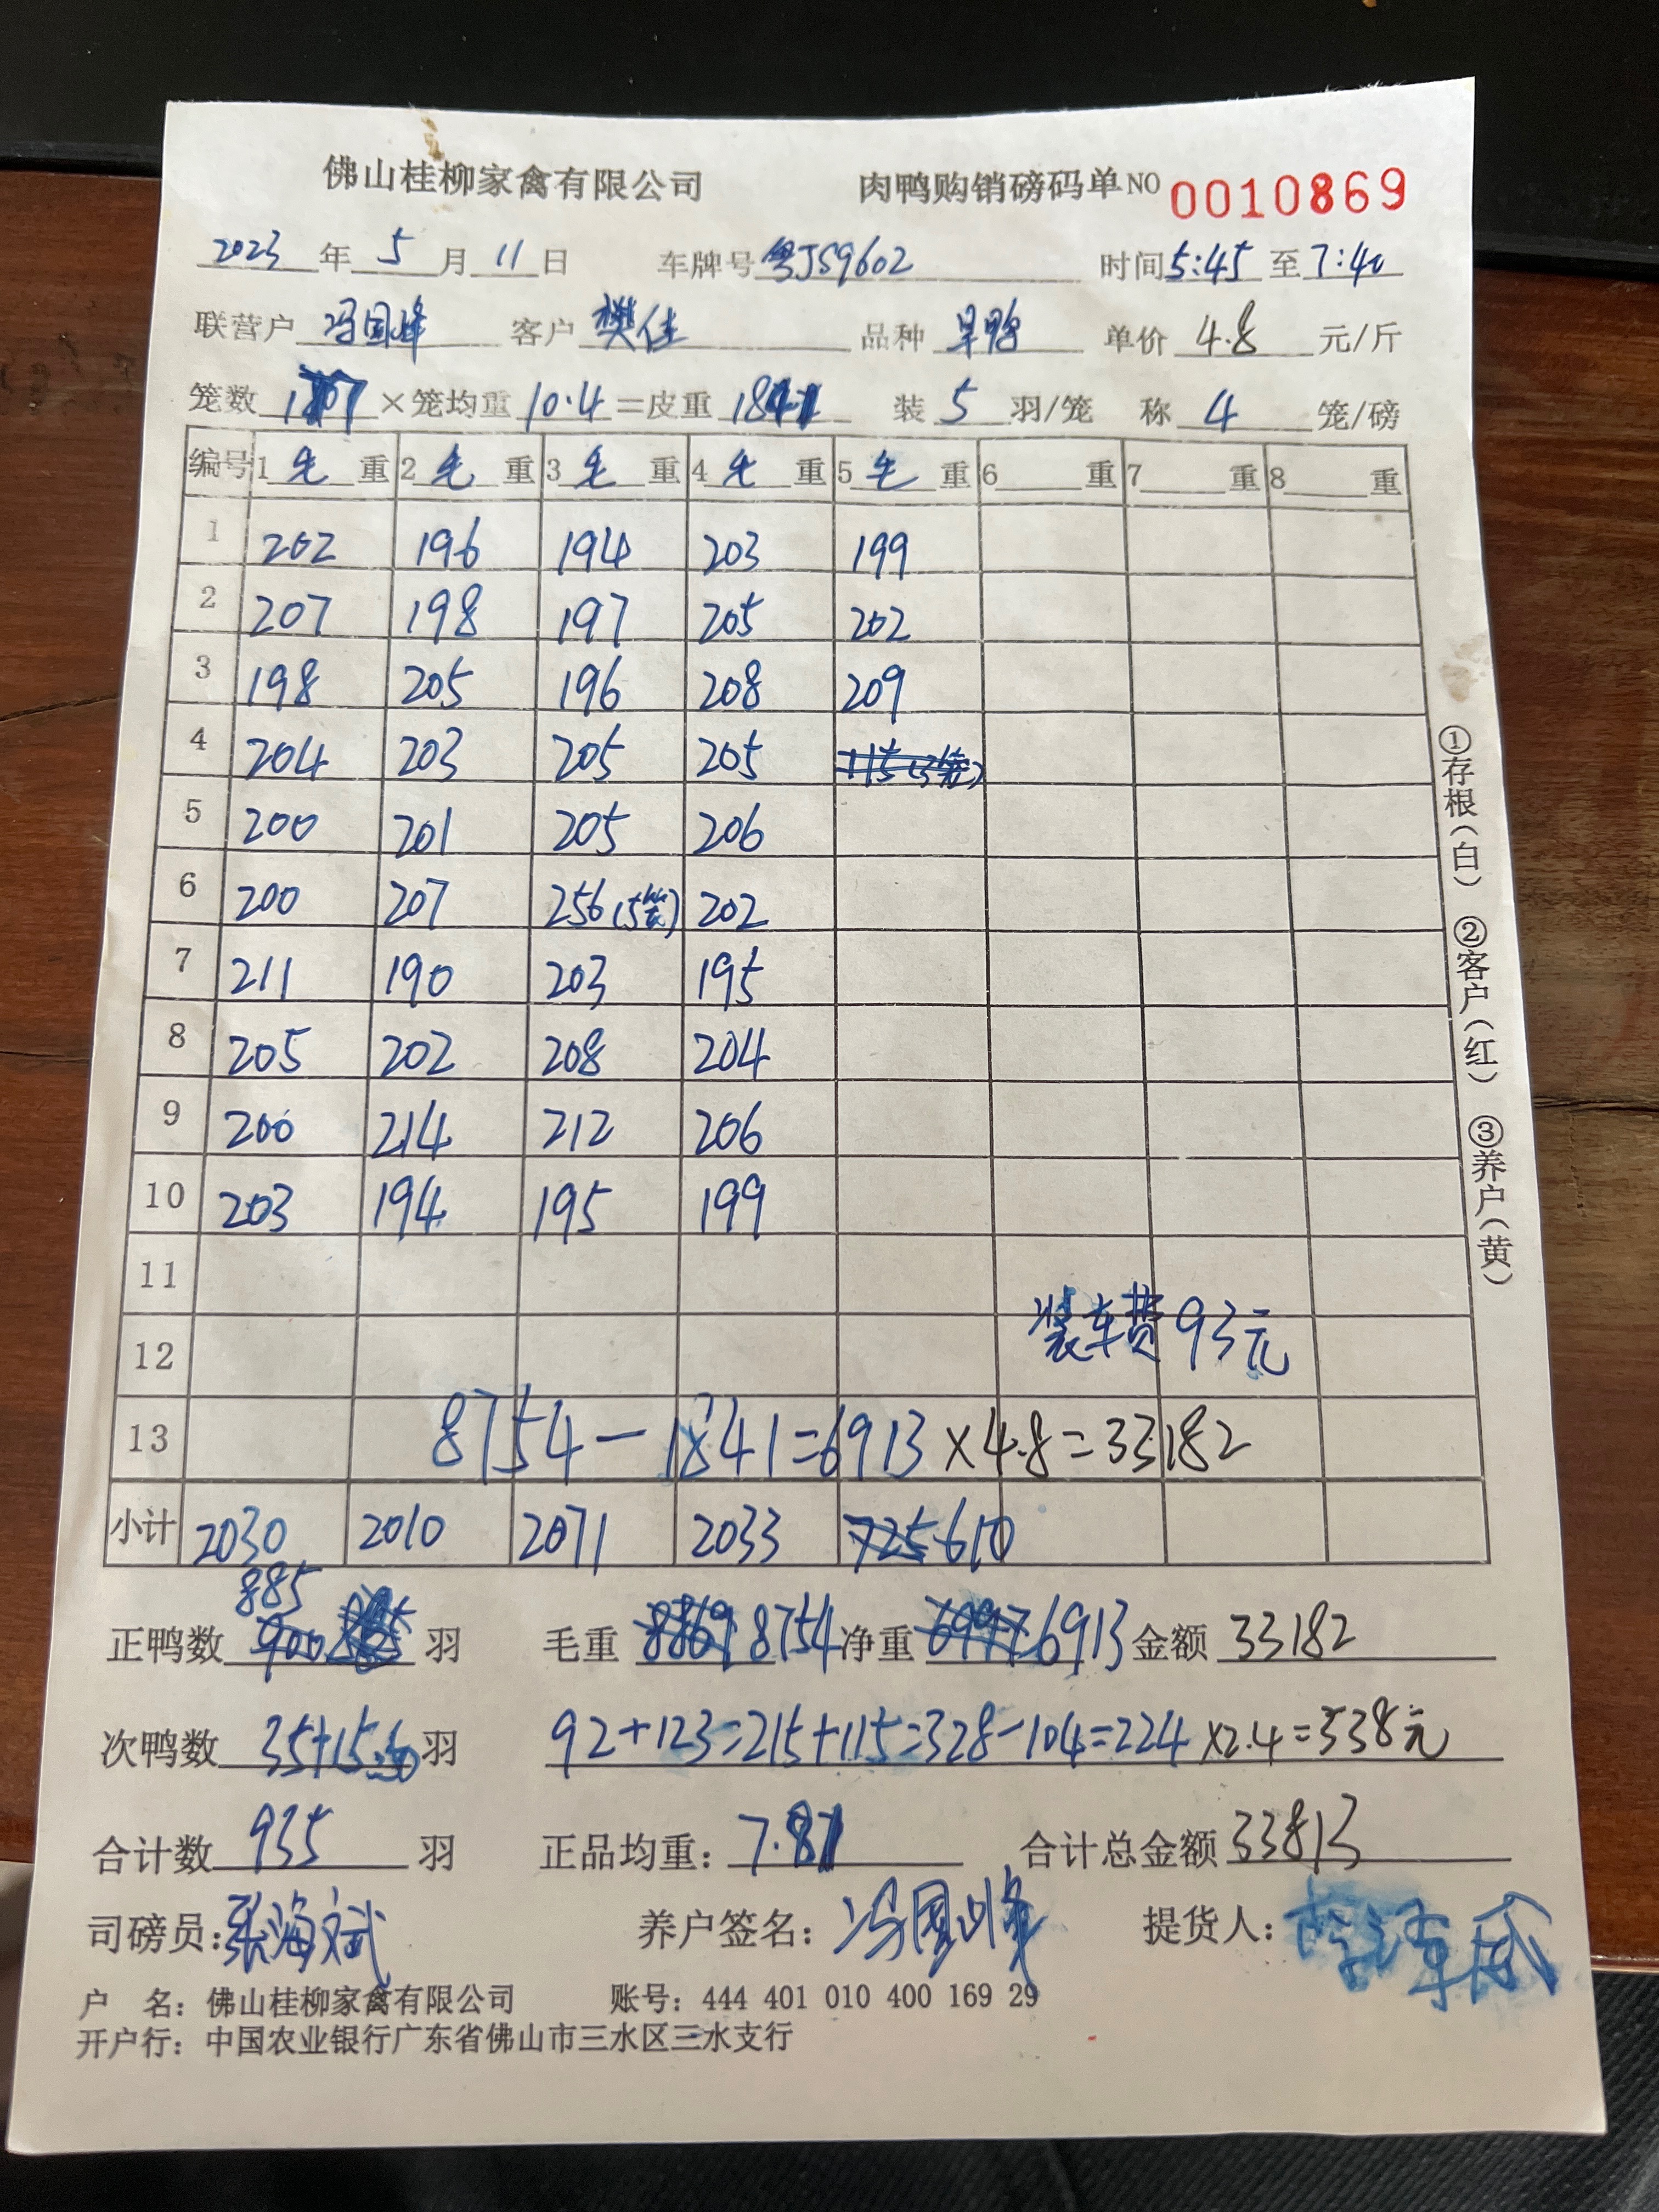 佛山桂柳家禽有限公司 肉鸭购销磅码单 NO 0010869
2023 年 5 月 11 日 车牌号 粤JS9602 时间 5:45 至 7:40
联营户 冯国峰 客户 樊佳 品种 旱鸭 单价 4.8 元/斤
笼数 × 笼均重 10.4 = 皮重 1841 装 5 羽/笼 称 4 笼/磅
编号 1 毛 重 2 毛 重 3 毛 重 4 毛 重 5 毛 重 6 重 7 重 8 重
1 202 196 194 203 199
2 207 198 197 205 202
3 198 205 196 208 209
4 204 203 205 205 115(3笼)
5 200 201 205 206
6 200 207 256(5笼) 202
7 211 190 203 195
8 205 202 208 204
9 200 214 212 206
10 203 194 195 199
11
12 装车费93元
13 8754-1841=6913×4.8=33182
小计 2030 2010 2071 2033 725 610
885
正鸭数 900 羽 毛重 8869 8754 净重 6997 6913 金额 33182
次鸭数 35+15=50 羽 92+123=215+115=328-104=224×2.4=538元
合计数 935 羽 正品均重: 7.81 合计总金额 33813
司磅员: 张海斌 养户签名: 冯国峰 提货人:
户 名: 佛山桂柳家禽有限公司 账号: 444 401 010 400 169 29
开户行: 中国农业银行广东省佛山市三水区三水支行
①存根(白) ②客户(红) ③养户(黄)